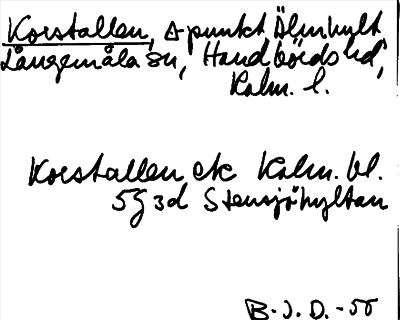 Korstallen, △ punkt Älmhult
Långemåla sn, Handbörds hd,
Kalm. l.
Korstallen ek Kalm. bl.
5g3d Stensjöhyltan
B.J.D.-55